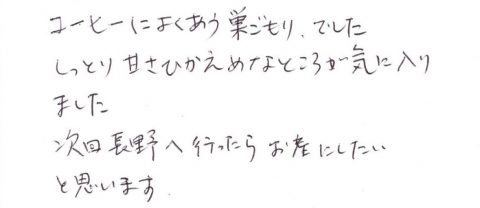 コーヒーによくあう巣ごもり、でした
しっとり甘さひかえめなところが気に入り
ました
次回長野へ行ったらお産にしたい
と思います